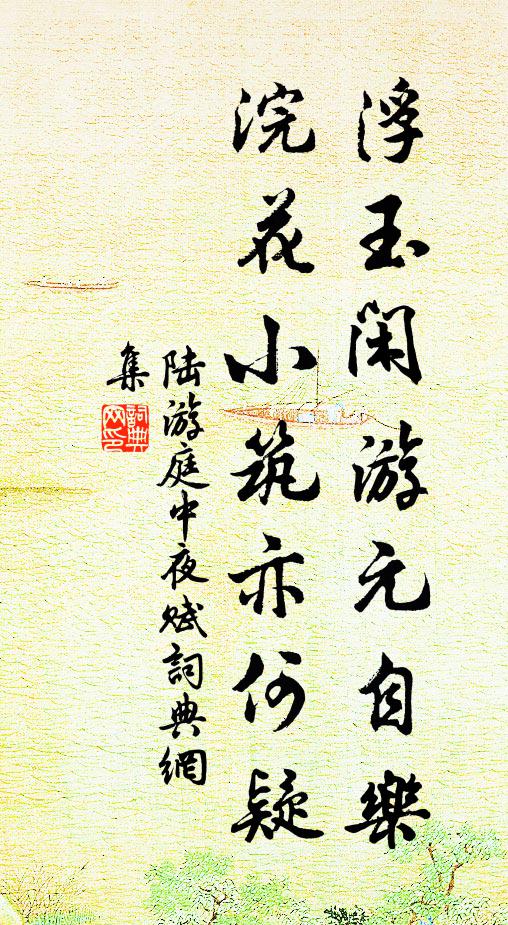 浮玉闲游元自樂
浣花小筑亦何疑
陆游庭中夜赋詞典網
集
詞典网印